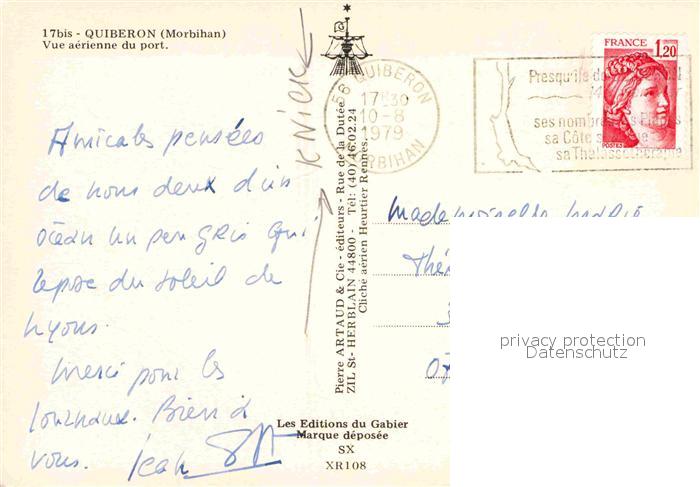 17bis - QUIBERON (Morbihan)
Vue aérienne du port.
Amicales pensées
de nous deux d'un
océan un peu gris qui
repose du soleil de
Nyons.
Merci pour les
journaux. Bien à
vous. Jean
KNICK
Pierre ARTAUD & Cie - éditeurs - Rue de la Dutée
ZIL St- HERBLAIN 44800 - Tél: (40) 46.02.24
Cliché aérien Heurtier Rennes.
Les Editions du Gabier
Marque déposée
SX
XR108
56 QUIBERON
17H30
10-8
1979
MORBIHAN
Presqu'île de
ses nombreuses Plages
sa Côte sauvage
sa Thalassothérapie
FRANCE
1,20
POSTES
Mademoiselle Marie
Thér
07
privacy protection
Datenschutz